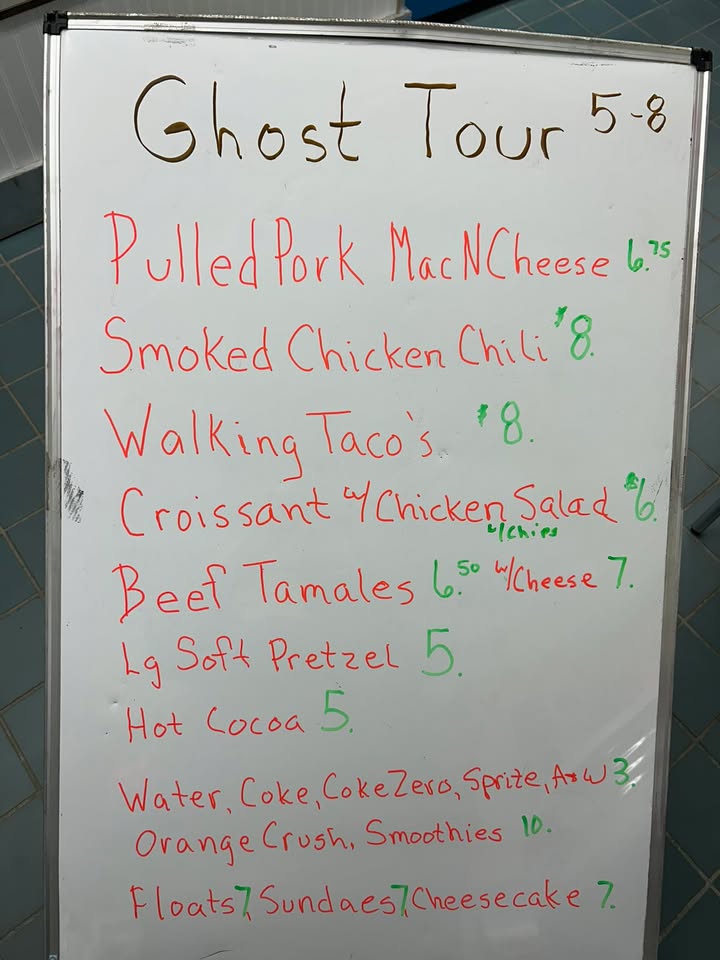 Ghost Tour 5-8
Pulled Pork Mac N Cheese 6.75
Smoked Chicken Chili $8.
Walking Taco's $8.
Croissant w/Chicken Salad $6.
w/chips
Beef Tamales 6.50 w/Cheese 7.
Lg Soft Pretzel 5.
Hot Cocoa 5.
Water, Coke, Coke Zero, Sprite, A&W 3.
Orange Crush, Smoothies 10.
Floats 7, Sundaes 7, Cheesecake 7.